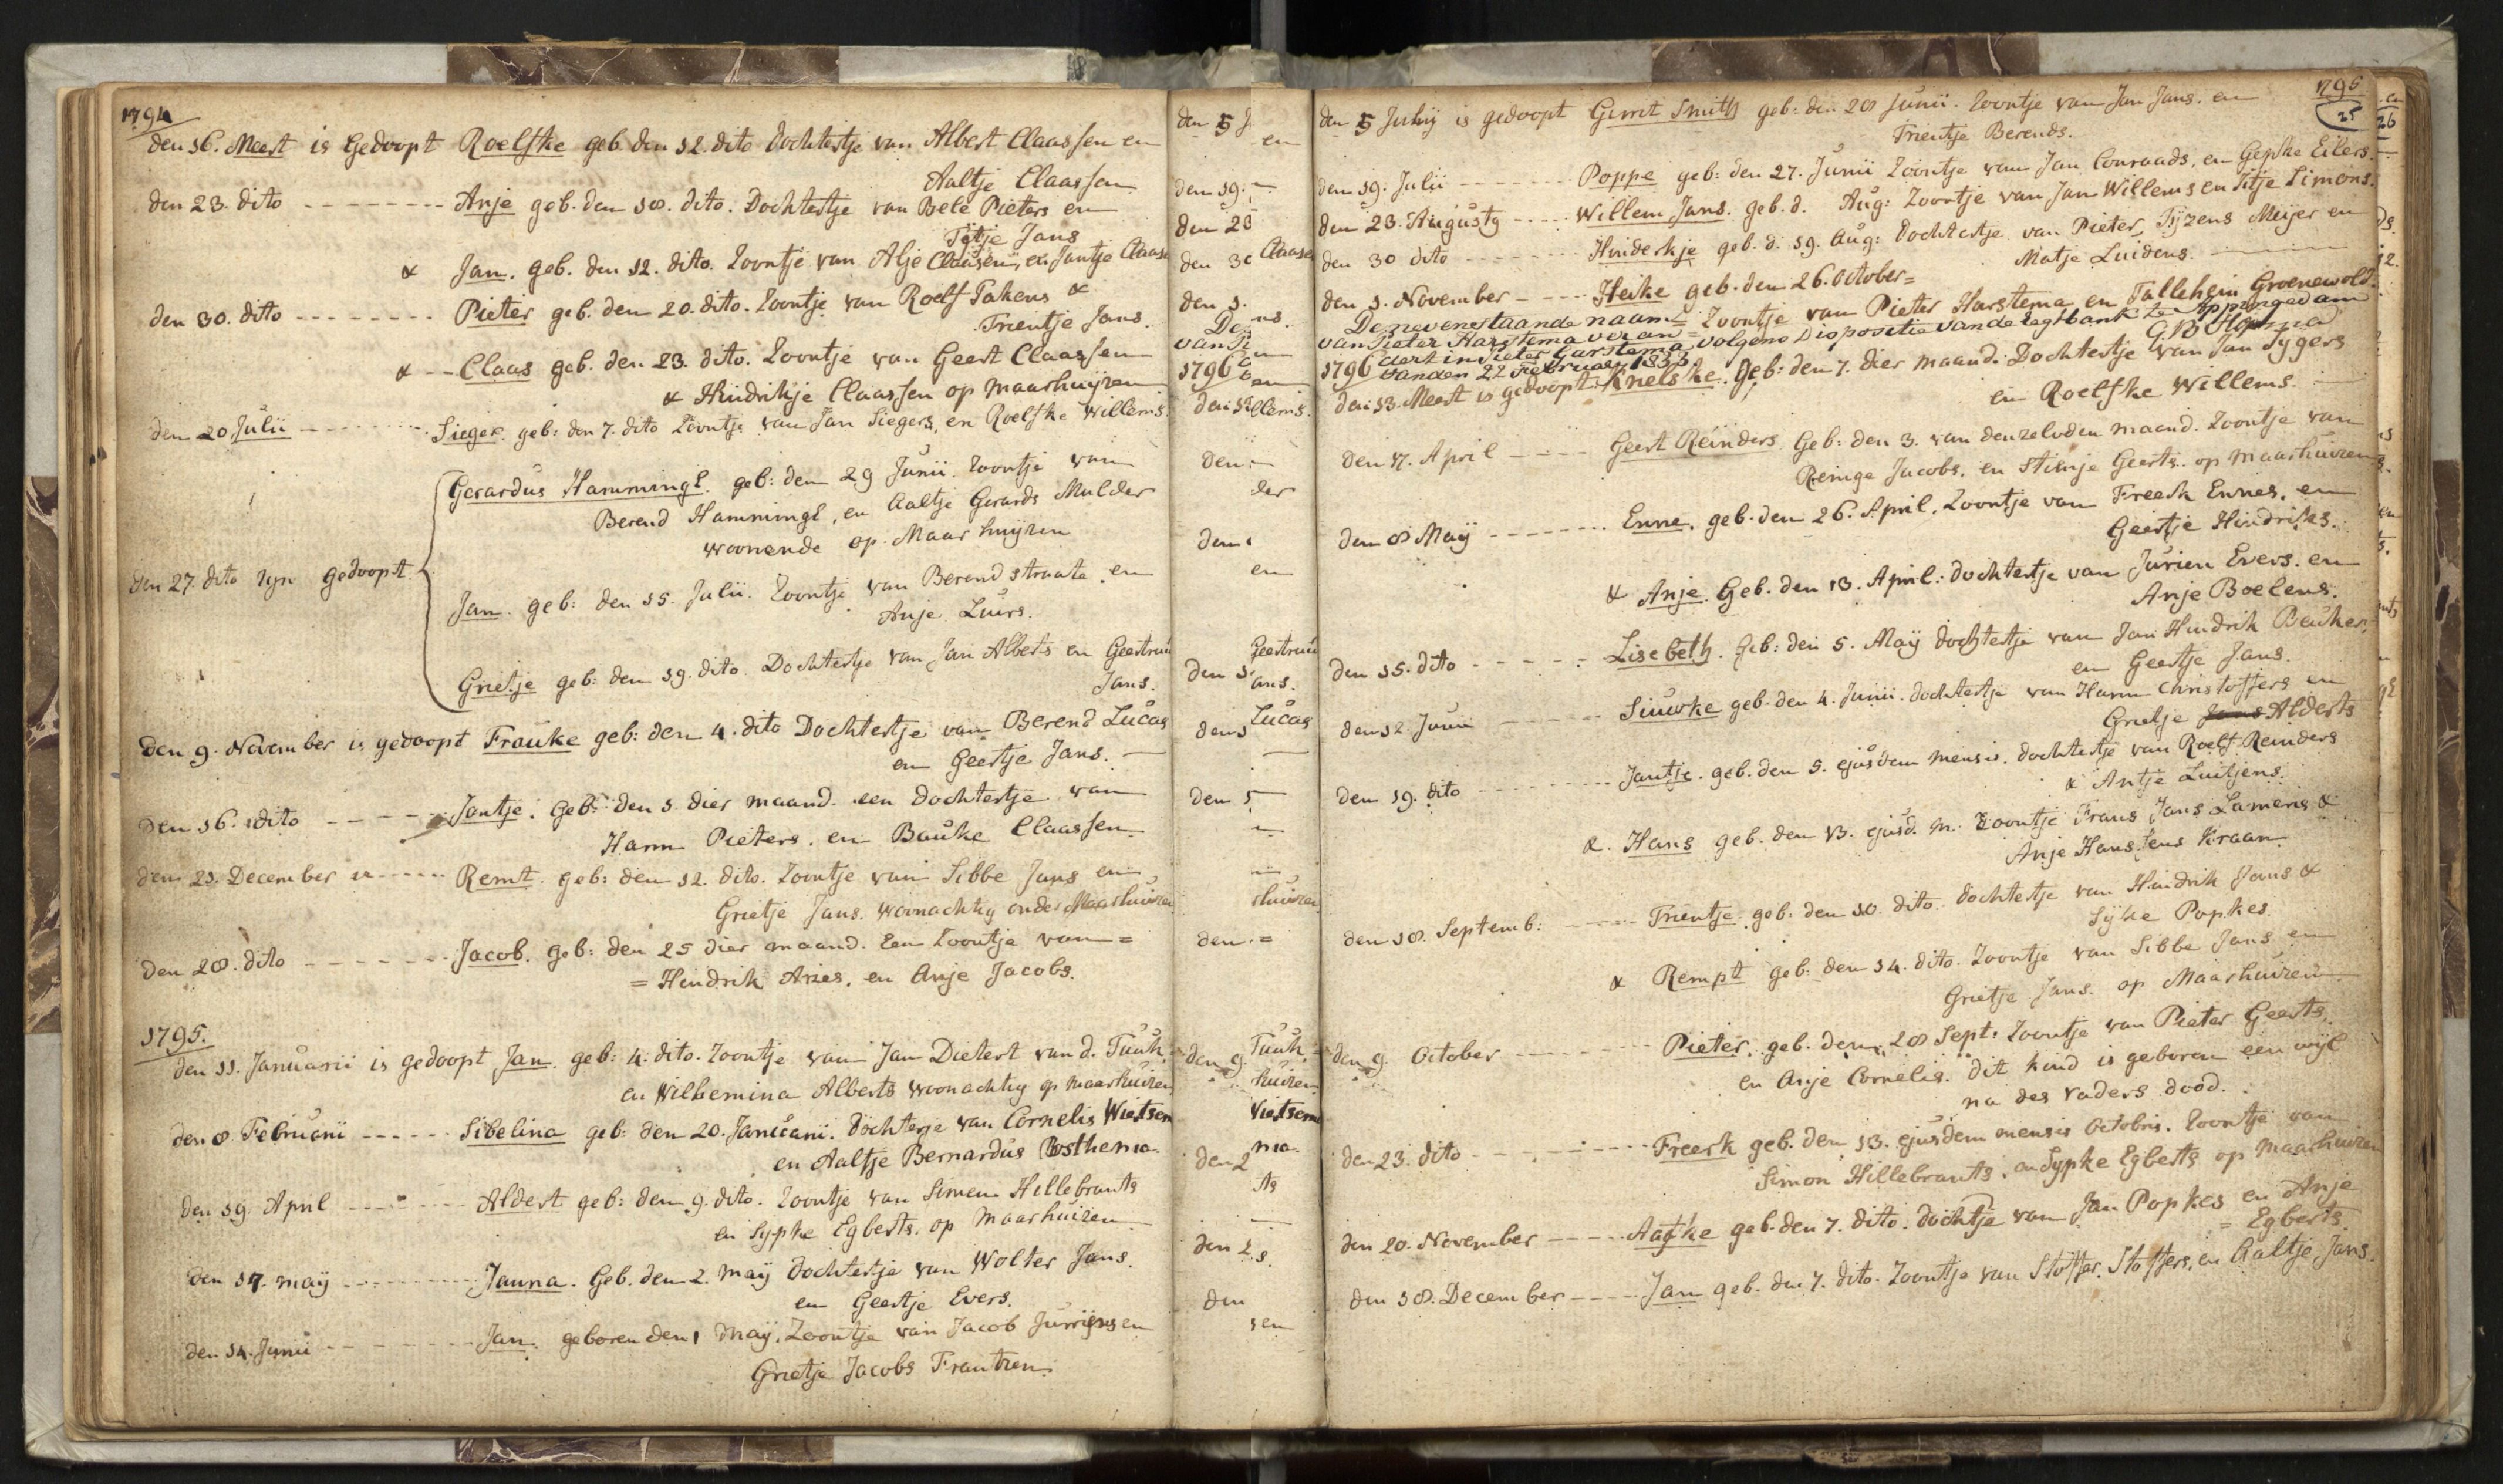 1794
den 16. Meert is Gedoopt Roelfke geb. den 12. dito Dochtertje van Albert Claassen en
Aaltje Claassen
den 23. dito -------- Anje geb. den 10. dito. Dochtertje van Bele Pieters en
Tÿtje Jans
& Jan. geb. den 12. dito. Zoontje van Alje Claasen, en Jantje Claase
den 30. dito -------- Pieter geb. den 20. dito. Zoontje van Roelf Takens &
Trientje Jans.
& -- Claas geb. den 23. dito. Zoontje van Geert Claassen
& Hindrikje Claassen op Maarhuizen
den 20 Julii -------- Sieger. geb: den 7. dito Zoontje van Jan Siegers, en Roelfke Willems.
Gerardus Hammingh. geb: den 29 Junii. Zoontje van
Berend Hammingh, en Aaltje Gerards Mulder
woonende op Maarhuijzen
den 27. dito zyn gedoopt
Jan. geb: den 15. Julii. Zoontje van Berend Straate en
Anje Luirs.
Grietje geb: den 19. dito. Dochtertje van Jan Alberts en Geertruu
Jans.
den 9. November is gedoopt Frauke geb: den 4. dito Dochtertje van Berend Lucas
en Geertje Jans.
den 16. dito ----- Jantje. Geb: den 5 dier maand. een Dochtertje van
Harm Pieters, en Bauke Claassen
den 21. December ------ Remt. geb: den 12. dito. Zoontje van Sibbe Jans en
Grietje Jans. woonachtig onder Maarhuizen
den 28. dito ------- Jacob. geb: den 25 dier maand. Een Zoontje van =
= Hindrik Aries, en Anje Jacobs.
1795.
den 11. Januarii is gedoopt Jan geb: 4. dito. Zoontje van Jan Dietert van d. Tuuk.
en Wilhemina Alberts woonachtig op Maarhuizen
den 8 Februarii ------ Sibelina geb: den 20. Januarii. Dochterje van Cornelis Wietsem
en Aaltje Bernardus Bosthema.
den 19. April ------ Aldert geb: den 9. dito. Zoontje van Simen Hillebrants
en Sypke Egberts. op Maarhuizen
den 17. maÿ -------- Janna. Geb. den 2. maÿ Dochtertje van Wolter Jans.
en Geertje Evers.
den 14. Junii -------- Jan. geboren den 1 maÿ. Zoontje van Jacob Jurriens en
Grietje Jacobs Frantzen.
den 5 J
en
den 19.
den 23
den 30 Claase
den 1.
1796
den 13 llems.
den
der
den
en
Geertruu
den 1 ans.
Lucas
den 1
den 1
huizen
den =
Tuuk.
den 9
huizen
Wietsem
den 2 ma.
ts
den 2 s.
den
s en
1795.
25
26
den 5 Julij is gedoopt Gerrit Smith geb: den 28 Junii. Zoontje van Jan Jans. en
Trientje Berends.
den 19. Julii ------- Poppe geb: den 27. Junii Zoontje van Jan Conraads, en Gepke Eilers.
den 23. Augusty ---- Willem Jans. geb. d. Aug: Zoontje van Jan Willems en Titje Simons.
den 30 dito ------- Hinderkje geb. d. 19. Aug: Dochtertje van Pieter Tÿzens Meijer en
Matje Luidens.
den 1. November ---- Heike geb. den 26. October =
= Zoontje van Pieter Harstema en Tallehein Groenewold.
De nevenstaande naam
van Pieter Harstema verand = volgens Dispositie van de regtbank te Appingedam
dert in Pieter Garstema
van den 22 Februarij 1833
1796
den 13. Meert is gedoopt Knelske. Geb: den 7. dier maand. Dochtertje van Jan Sygers
en Roelfke Willems.
den 17. April ---- Geert Reinders Geb: den 3. van denzelvden maand. Zoontje van
Reinge Jacobs, en Stientje Geerts. op Maarhuizen
den 8 Maÿ ------ Enne, geb. den 26. April. Zoontje van Freerk Ennes, en
Geertje Hindriks.
& Anje. Geb. den 13. April: dochtertje van Jurien Evers. en
Anje Boelens.
den 15. dito ------ Lisebeth. Geb: den 5. Maÿ dochtertje van Jan Hindrik Beuker,
en Geertje Jans.
den 12 Junii ------ Siuwke geb. den 4. Junii. dochtertje van Harm Christoffers en
Grietje Jans Alderts
den 19. dito ------- Jantje. geb. den 5. ejusdem mensis. dochtertje van Roelf Reinders
& Antje Luitjens.
&. Hans geb. den 13. ejusd. m. Zoontje Frans Jans Lameris &
Anje Hanssens Kraan.
den 18. Septemb: ----- Trientje. geb. den 10. dito. dochtertje van Hindrik Jans &
Sÿke Popkes.
& Rempt geb: den 14. dito. Zoontje van Sibbe Jans en
Grietje Jans. op Maarhuizen
den 9. October -------- Pieter. geb. den 28 Sept: Zoontje van Pieter Geerts.
en Anje Cornelis. dit kind is geboren een wijl
na des vaders dood.
den 23. dito -------- Freerk geb. den 13. ejusdem mensis Octobris. Zoontje van
Simon Hillebrants. en Sypke Egberts op Maarhuizen
den 20. November ----- Aafke geb. den 7. dito. dochtje van Jan Popkes en Anje
= Egberts.
den 18. December ---- Jan geb. den 7. dito. Zoontje van Stoffer Stoffers, en Aaltje Jans.